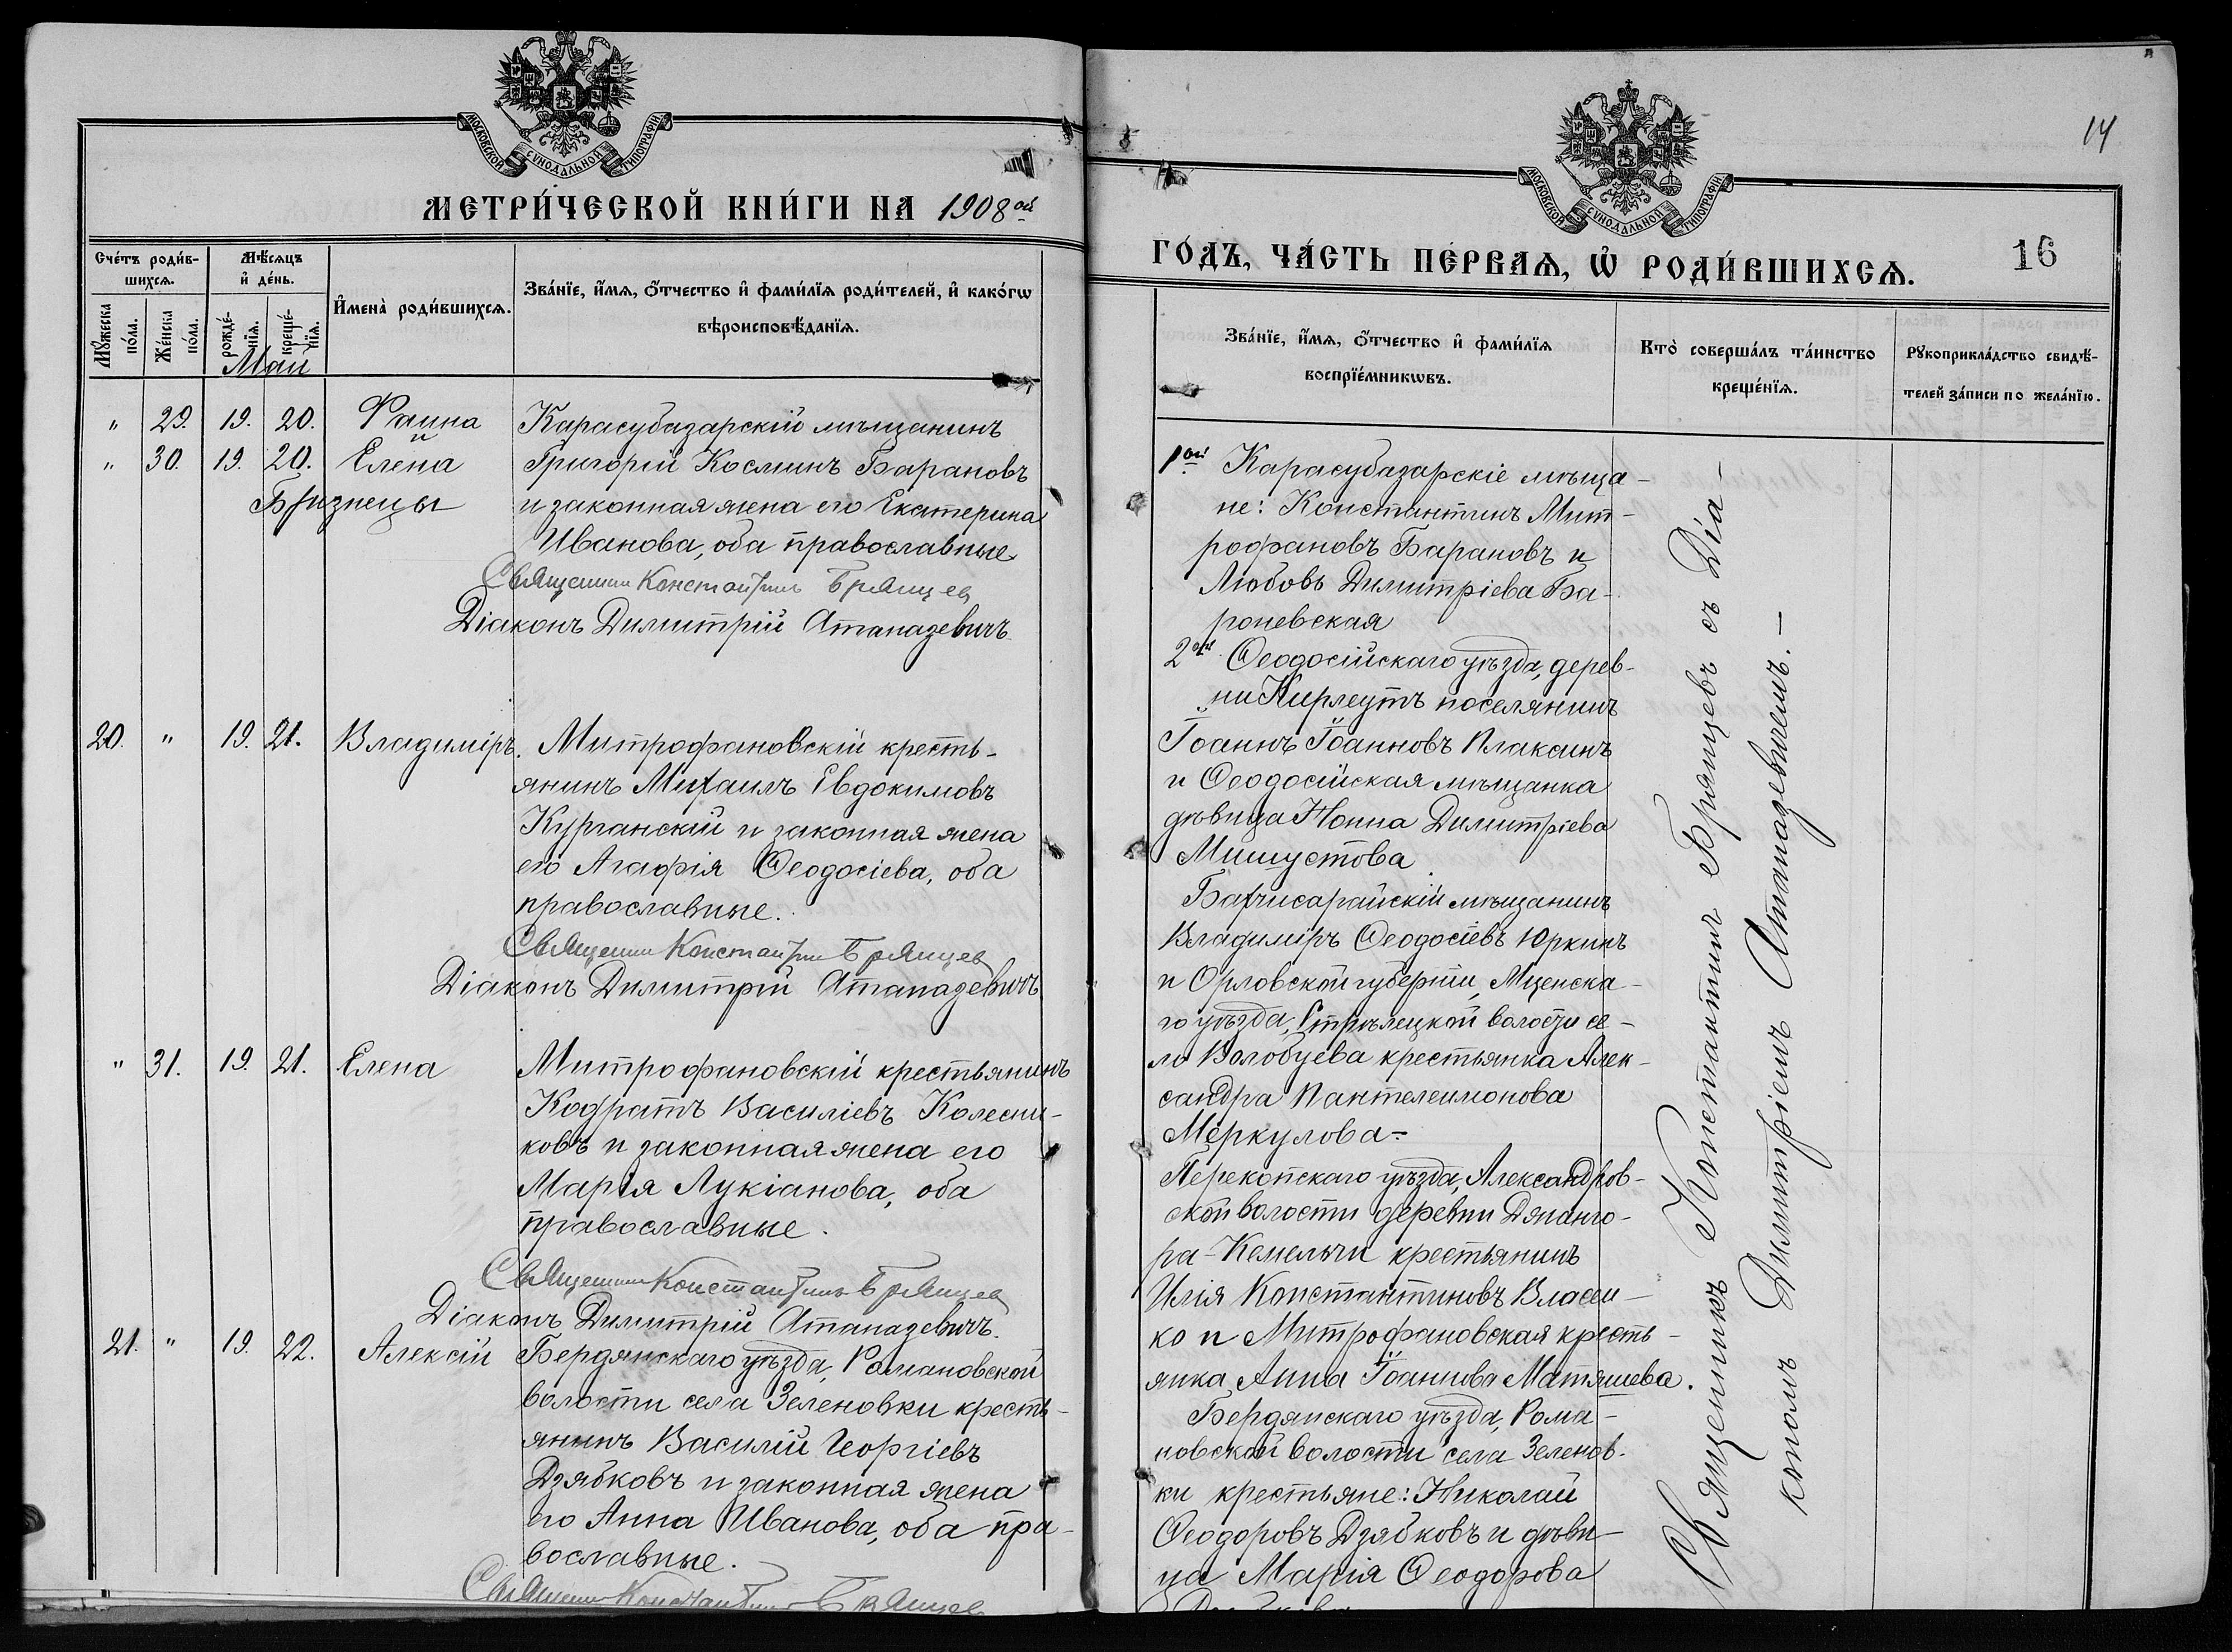 МОСКОВСКОЙ СѴНОДАЛЬНОЙ ТИПОГРАФІИ
МЕТРИ́ЧЕСКОЙ КНИ́ГИ НА 1908ой
Сче́тъ роди́в-
шихсѧ.
Мѣ́сѧцъ
и҆ де́нь.
Мꙋ́жеска
по́ла.
Же́нска
по́ла.
рожде́-
нїѧ.
креще́-
нїѧ.
И҆мена̀ роди́вшихсѧ.
Зва́нїе, и҆́мѧ, ѻ҆́тчество и҆ фами́лїѧ роди́телей, и҆ како́гѡ
вѣроисповѣ́данїѧ.
Май
" 29. 19. 20. Фаина Карасубазарскій мѣщанинъ
" 30. 19. 20. Елена Григорій Косминъ Барановъ
Близнецы и законная жена его Екатерина
Иванова, оба православные
Священник Константин Брянцев
Діаконъ Димитрій Атаназевичъ.
20. " 19. 21. Владиміръ. Митрофановскій кресть-
янинъ Михаилъ Евдокимовъ
Курганскій и законная жена
его Агафія Ѳеодосіева, оба
православные.
Священник Константин Брянцев
Діаконъ Димитрій Атаназевичъ
" 31. 19. 21. Елена Митрофановскій крестьянинъ
Кодратъ Василіевъ Колесни-
ковъ и законная жена его
Марія Лукіанова, оба
православные.
Священник Константин Брянцев
Діаконъ Димитрій Атаназевичъ.
21. " 19. 22. Алексій Бердянскаго уѣзда, Романовской
волости села Зеленовки кресть-
янинъ Василій Георгіевъ
Дзябковъ и законная жена
его Анна Иванова, оба пра-
вославные.
Священник Константин Брянцев
14
МОСКОВСКОЙ СѴНОДАЛЬНОЙ ТИПОГРАФІИ
16
ГО́ДЪ, ЧА́СТЬ ПЕ́РВАѦ, Ѡ҆ РОДИ́ВШИХСѦ.
Зва́нїе, и҆́мѧ, ѻ҆́тчество и҆ фами́лїѧ
воспрїе́мникѡвъ.
Кто̀ соверша́лъ та́инство
креще́нїѧ.
Рꙋкоприкла́дство свидѣ́-
телей за́писи по жела́нїю.
1ой Карасубазарскіе мѣща-
не: Константинъ Мит-
рофановъ Барановъ и
Любовь Димитріева Ба-
роневская
2ой Ѳеодосійскаго уѣзда, дерев-
ни Кирлеутъ поселянинъ
Іоаннъ Іоанновъ Плаксинъ
и Ѳеодосійская мѣщанка
дѣвица Нонна Димитріева
Мишустова
Бахчисарайскій мѣщанинъ
Владиміръ Ѳеодосіевъ Юркинъ
и Орловской губерніи, Мценска-
го уѣзда, Стрѣлецкой волости се-
ла Волобуева крестьянка Алек-
сандра Пантелеимонова
Меркулова-
Перекопскаго уѣзда, Александров-
ской волости деревни Джанго-
ра-Кемельчи крестьянинъ
Илія Константиновъ Власен-
ко и Митрофановская кресть-
янка Анна Іоаннова Матяшева.
Бердянскаго уѣзда, Рома-
новской волости села Зеленов-
ки крестьяне: Николай
Ѳеодоровъ Дзябковъ и дѣви-
ца Марія Ѳеодорова
Священникъ Константинъ Брянцевъ съ Діа-
кономъ Димитріемъ Атаназевичемъ.-